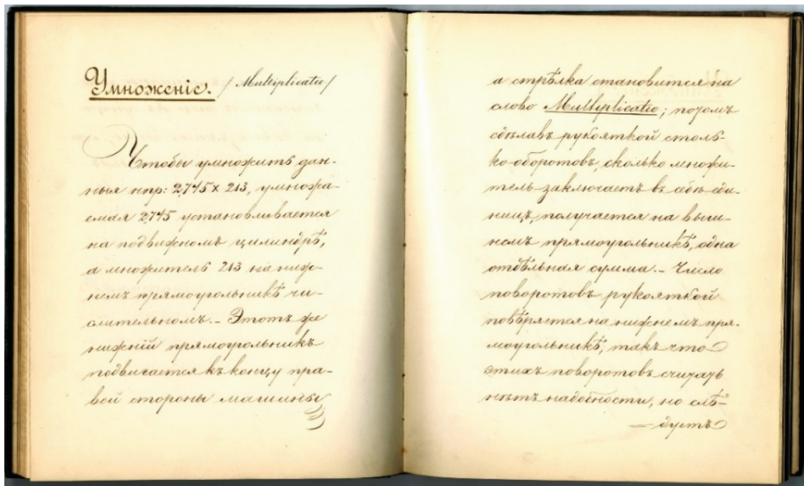 Умноженіе. /Multiplicatio/
Чтобы умножить дан-
ныя нпр: 2,745 x 213, умножа-
емая 2,745 установливается
на подвижномъ цилиндрѣ,
а множитель 213 на ниж-
немъ прямоугольникѣ чи-
слительномъ. - Этотъ же
нижній прямоугольникъ
подвигается къ концу пра-
вой стороны машины
а стрѣлка становится на
слово Multiplicatio; потомъ
сдѣлавъ рукояткой столь-
ко-оборотовъ, сколько множи-
тель-заключаетъ въ себѣ еди-
ницъ, получается на
немъ прямоугольникѣ, одна
отдѣльная сумма. - Число
поворотовъ рукояткой
повѣряется на нижнемъ пря-
моугольникѣ; такъ что
этихъ поворотовъ считать
нѣтъ надобности, но слѣ-
- дуетъ